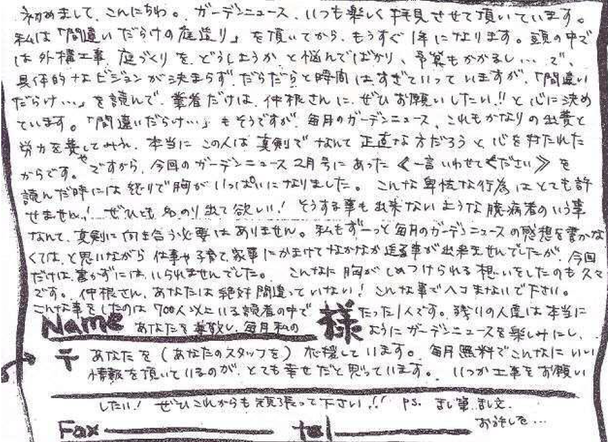 初めまして、こんにちわ。ガーデンニュース、いつも楽しく拝見させて頂いています。
私は「間違いだらけの庭造り」を頂いてから、もうすぐ1年になります。頭の中で
は外構工事、庭づくりを、どうしようか、と悩んでばかり、予算もかかるし…で、
具体的なビジョンが決まらず、だらだらと時間はすぎていっていますが、「間違い
だらけ…」を読んで、業者だけは、仲根さんに、ぜひお願いしたい!!と心に決め
ています。「間違いだらけ…」もそうですが、毎月のガーデンニュース、これもかなりの出費と
労力を費してみえ、本当にこの人は真剣でなんて正直な方だろうと心を打たれた
からです。ですから、今回のガーデンニュース2月号にあった≪一言いわせてください≫を
読んだ時には怒りで胸がいっぱいになりました。こんな卑怯な行為はとても許
せません!ぜひとも名のり出て欲しい!そうする事も出来ないような臆病者のいう事
なんて、真剣に向き合う必要はありません。私もずーっと毎月のガーデンニュースの感想を書かな
くては、と思いながら仕事や子育て、家事にかまけてなかなか返事が出来ませんでしたが、今回
だけは書かずには、いられませんでした。こんなに胸がしめつけられる想いをしたのも久々
です。仲根さん、あなたは絶対間違っていない!こんな事でヘコまないで下さい。
こんな事をしたのは700人以上いる読者の中で たった1人です。残りの人達は本当に
Name あなたを尊敬し、毎月私の 様 ようにガーデンニュースを楽しみにし、
〒 あなたを(あなたのスタッフを)応援しています。毎月無料でこんなにいい
情報を頂いているのが、とても幸せだと思っています。いつか工事をお願い
したい!ぜひこれからも頑張って下さい!! P.S. 乱筆、乱文、
お許しを…
Fax tel